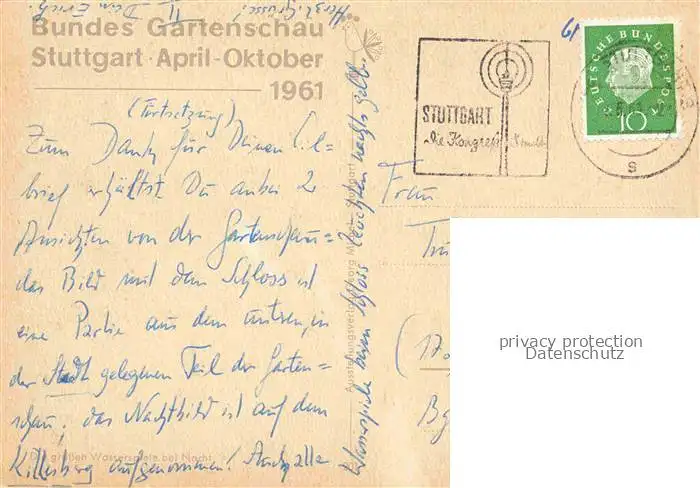 Herzl. Grüsse!
Dein Erich
II
Bundes Gartenschau
Stuttgart · April-Oktober
1961
(Fortsetzung)
Zum Dank für Deinen
brief erhältst Du anbei 2
Ansichten von der Gartenschau:
das Bild mit dem Schloss ist
eine Partie aus dem unteren, in
der Stadt gelegenen Teil der Garten=
schau, das Nachtbild ist auf dem
Killesberg aufgenommen! Auch alle
Die großen Wasserspiele bei Nacht
Wasserspiele beim Schloss leuchten nachts gelb.
Stuttgart
61
STUTTGART
Die Kongreß
DEUTSCHE BUNDESPOST
10
S
Frau
(170
privacy protection
Datenschutz